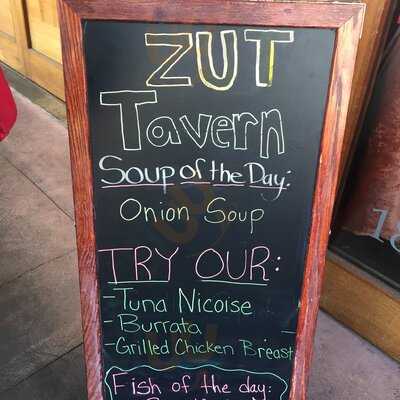 ZUT
Tavern
Soup of the Day:
Onion Soup
TRY OUR:
-Tuna Nicoise
-Burrata
-Grilled Chicken Breast
Fish of the day: